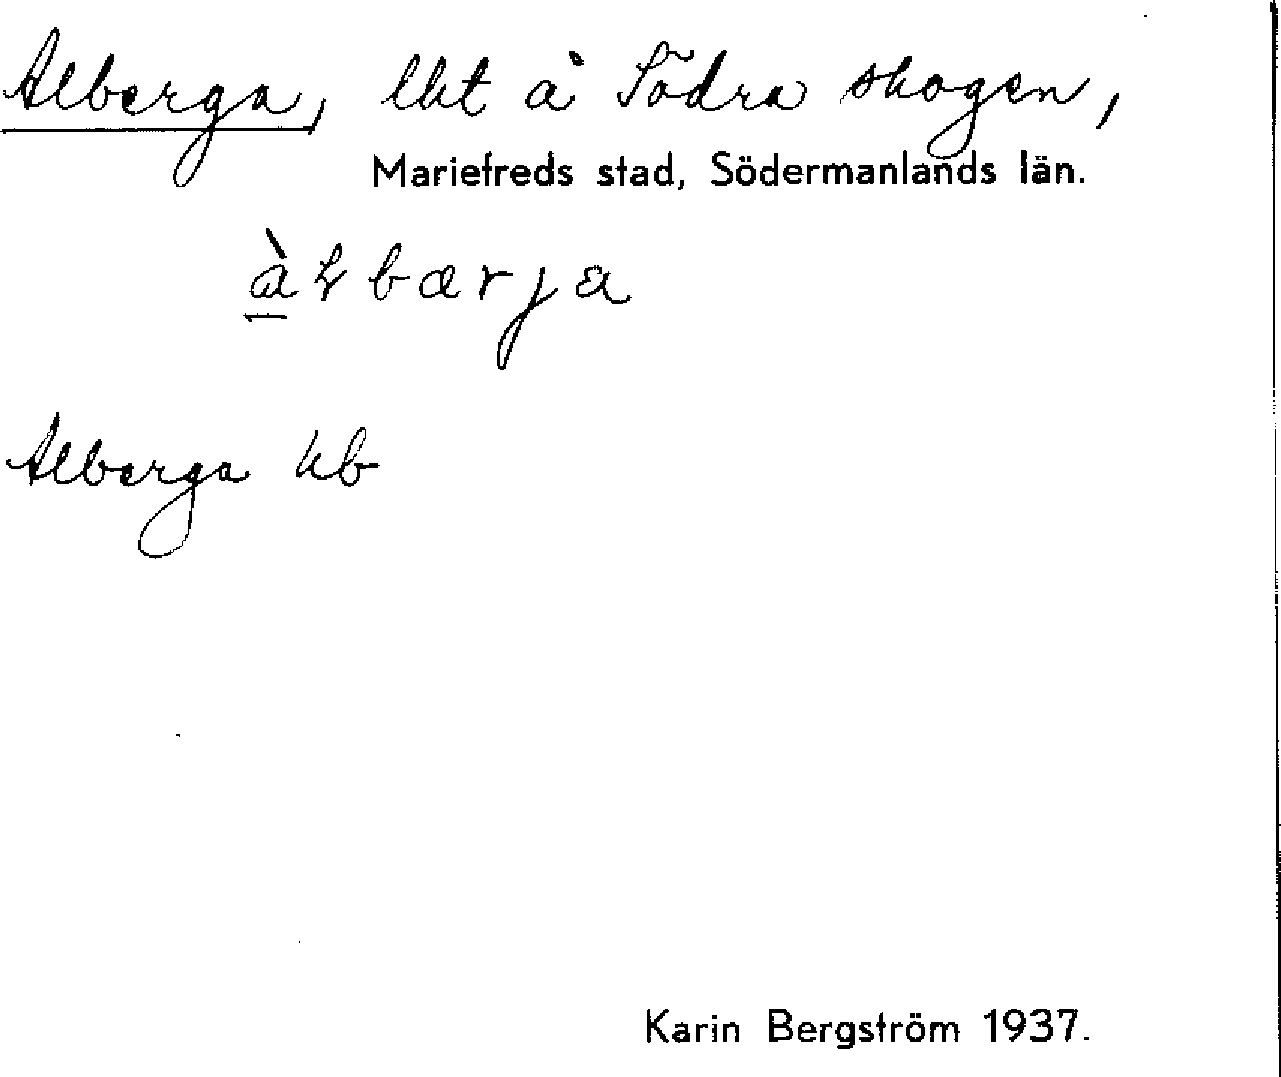 Alberga, lht å Södra skogen,
Mariefreds stad, Södermanlands län.
Alberga kb
Karin Bergström 1937.